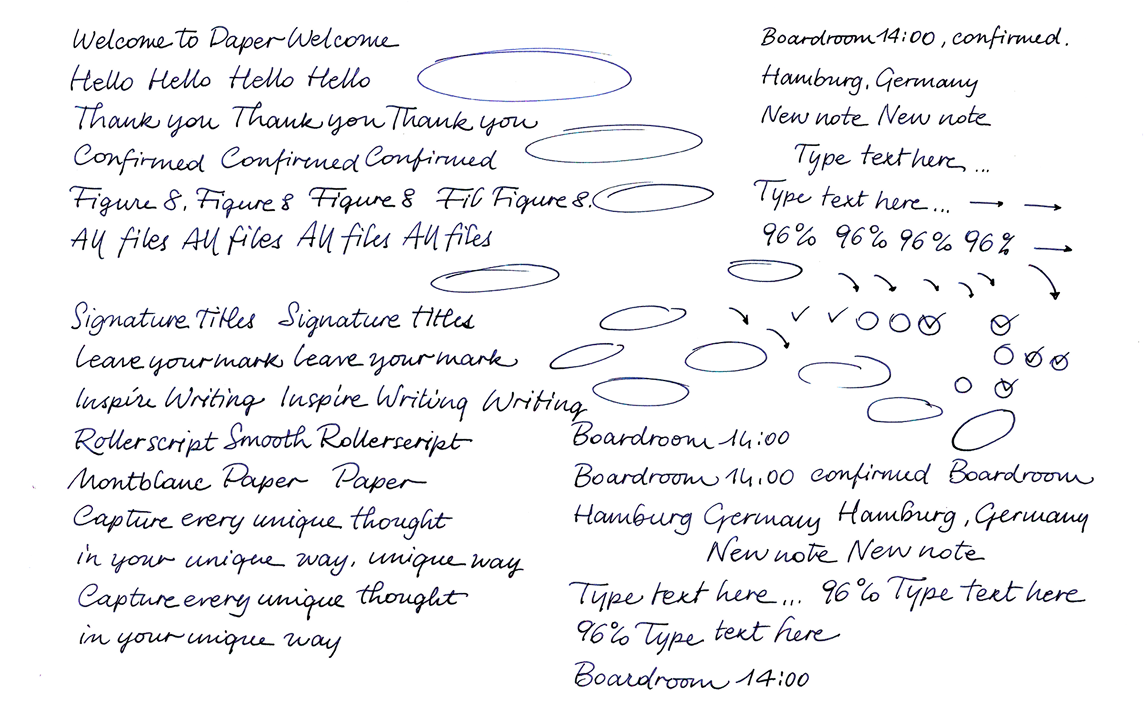 Welcome to Daper Welcome
Hello Hello Hello Hello
Thank you Thank you Thank you
Confirmed Confirmed Confirmed
Figure 8. Figure 8 Figure 8 Fil Figure 8.
All files All files All files All files
Signature Titles Signature titles
Leave your mark Leave your mark
Inspire Writing Inspire Writing Writing
Rollerscript Smooth Rollerscript
Montblanc Paper Paper
Capture every unique thought
in your unique way, unique way
Capture every unique thought
in your unique way
Boardroom 14:00, confirmed.
Hamburg, Germany
New note New note
Type text here, ...
Type text here ...
96% 96% 96% 96%
Boardroom 14:00
Boardroom 14.00 confirmed Boardroom
Hamburg Germany Hamburg, Germany
New note New note
Type text here ... 96% Type text here
96% Type text here
Boardroom 14:00